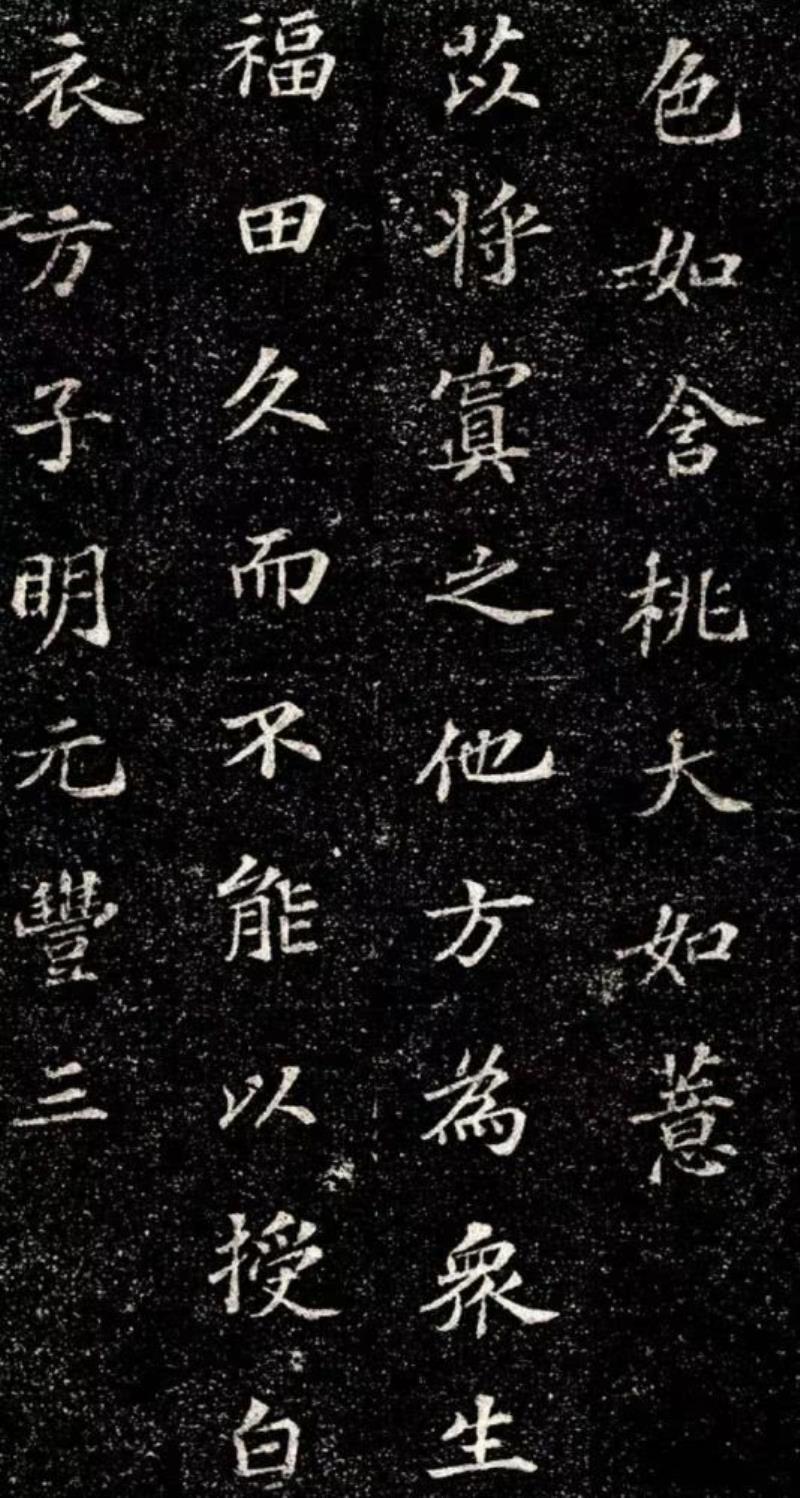 色如含桃大如薏
苡将寘之他方為眾生
福田久而不能以授白
衣方子明元豐三